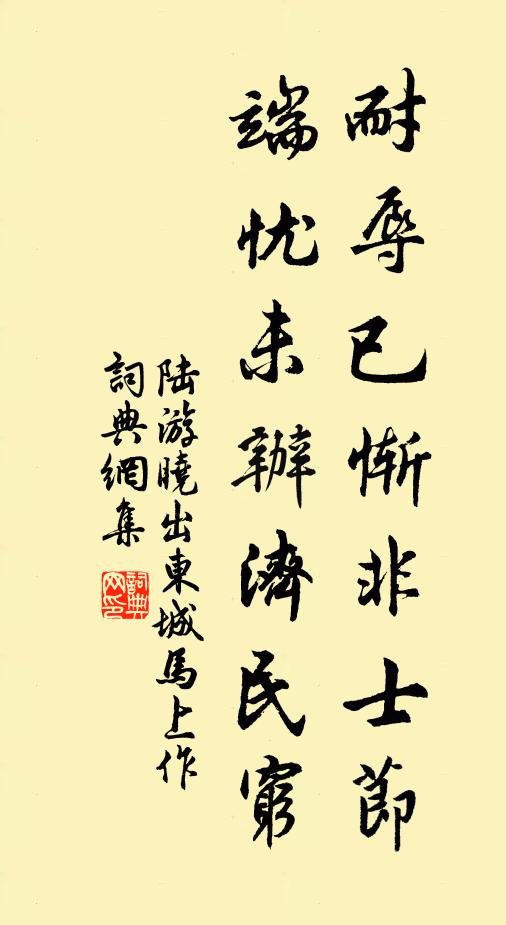 耐辱已慚非士節
端忧未辦濟民窮
陆游曉出東城馬上作
詞典網集
詞典网印